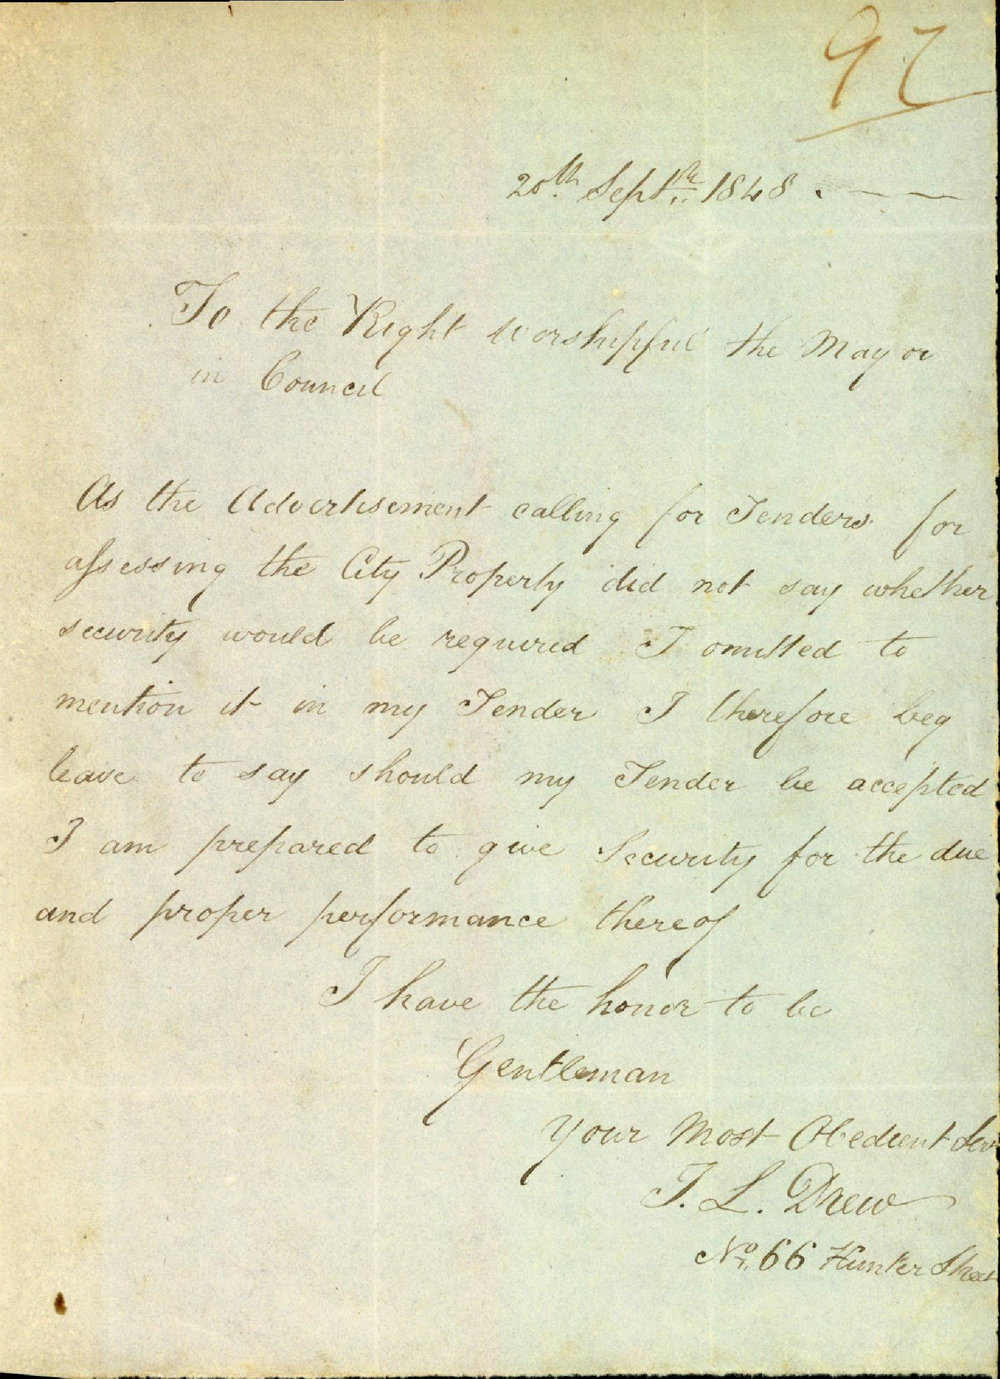 97
20th Septr 1848 . — —
To the Right Worshipful the Mayor
in Council
As the Advertisement calling for Tenders for
assessing the City Property did not say whether
security would be required I omitted to
mention it in my Tender I therefore beg
leave to say should my Tender be accepted
I am prepared to give Security for the due
and proper performance thereof
I have the honor to be
Gentleman
Your Most Obedient Serv
T. L. Drew
No. 66 Hunter Street